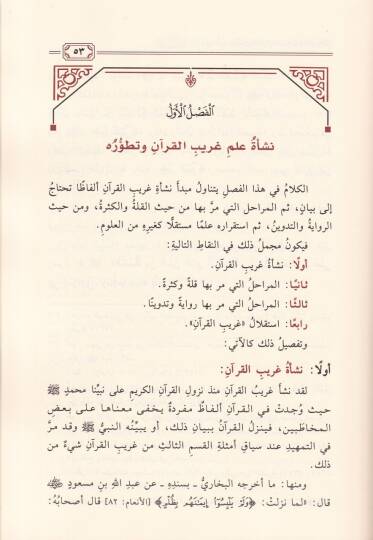 ٥٣
الْفَصْلُ الْأَوَّلُ
نشأةُ علمِ غريبِ القرآنِ وتطوُّره
الكلامُ في هذا الفصلِ يتناولُ مبدأ نشأةِ غريبِ القرآنِ ألفاظًا تحتاجُ
إلى بيانٍ، ثم المراحل التي مرَّ بها من حيث القلةُ والكثرةُ، ومن حيث
الروايةُ والتدوينُ، ثم استقراره علمًا مستقلًّا كغيرِهِ من العلومِ.
فيكونُ مجملُ ذلك في النقاطِ التاليةِ:
أولًا: نشأةُ غريبِ القرآنِ.
ثانيًا: المراحلُ التي مر بها قلةً وكثرةً.
ثالثًا: المراحلُ التي مر بها روايةً وتدوينًا.
رابعًا: استقلالُ «غريبِ القرآنِ».
وتفصيلُ ذلك كالآتي:
أولًا: نشأةُ غريبِ القرآنِ:
لقد نشأَ غريبُ القرآنِ منذ نزولِ القرآنِ الكريمِ على نبيِّنا محمدٍ ﷺ
حيث وُجدتْ في القرآنِ ألفاظٌ مفردةٌ يخفى معناها على بعضِ
المخاطَبين، فينزلُ القرآنُ ببيانِ ذلك، أو يبيِّنُه النبيُّ ﷺ وقد مرَّ
في التمهيدِ عند سياقِ أمثلةِ القسمِ الثالثِ من غريبِ القرآنِ شيءٌ من
ذلك.
ومنها: ما أخرجه البخاريُّ ـ بسندِهِ ـ عن عبدِ اللَّهِ بنِ مسعودٍ ﵁
قال: «لما نزلتْ: ﴿وَلَمْ يَلْبِسُوٓا۟ إِيمَٰنَهُم بِظُلْمٍ﴾ [الأنعام: ٨٢] قال أصحابُهُ: